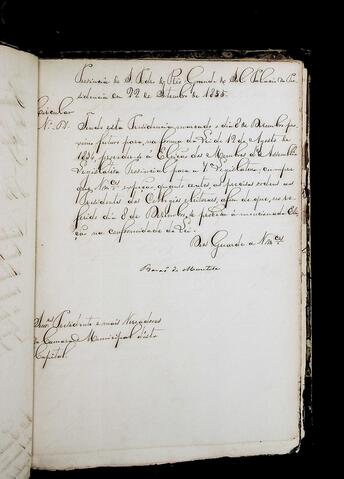 Provincia de S. Pedro do Rio Grande do Sul Palacio da Pre-
sidencia em 22 de Setembro de 1855.
Circular
N. 87. Tendo esta Presidencia marcado o dia 8 de Dezembro pro-
ximo futuro para, na forma da Lei de 12 de Agosto de
1834, proceder-se á Eleição dos Membros da Assembléa
Legislativa Provincial para a 7ª Legislatura, cumpre
que Vmces expeção, quanto antes, as precisas ordens aos
Presidentes dos Collegios eleitoraes, afim de que, no re-
ferido dia 8 de Dezembro, se proceda á mencionada Elei-
ção na conformidade da Lei.
Deos Guarde a Vmces
Barão de Muritiba
Snres Presidente e mais Vereadores
da Camara Municipal desta
Capital.